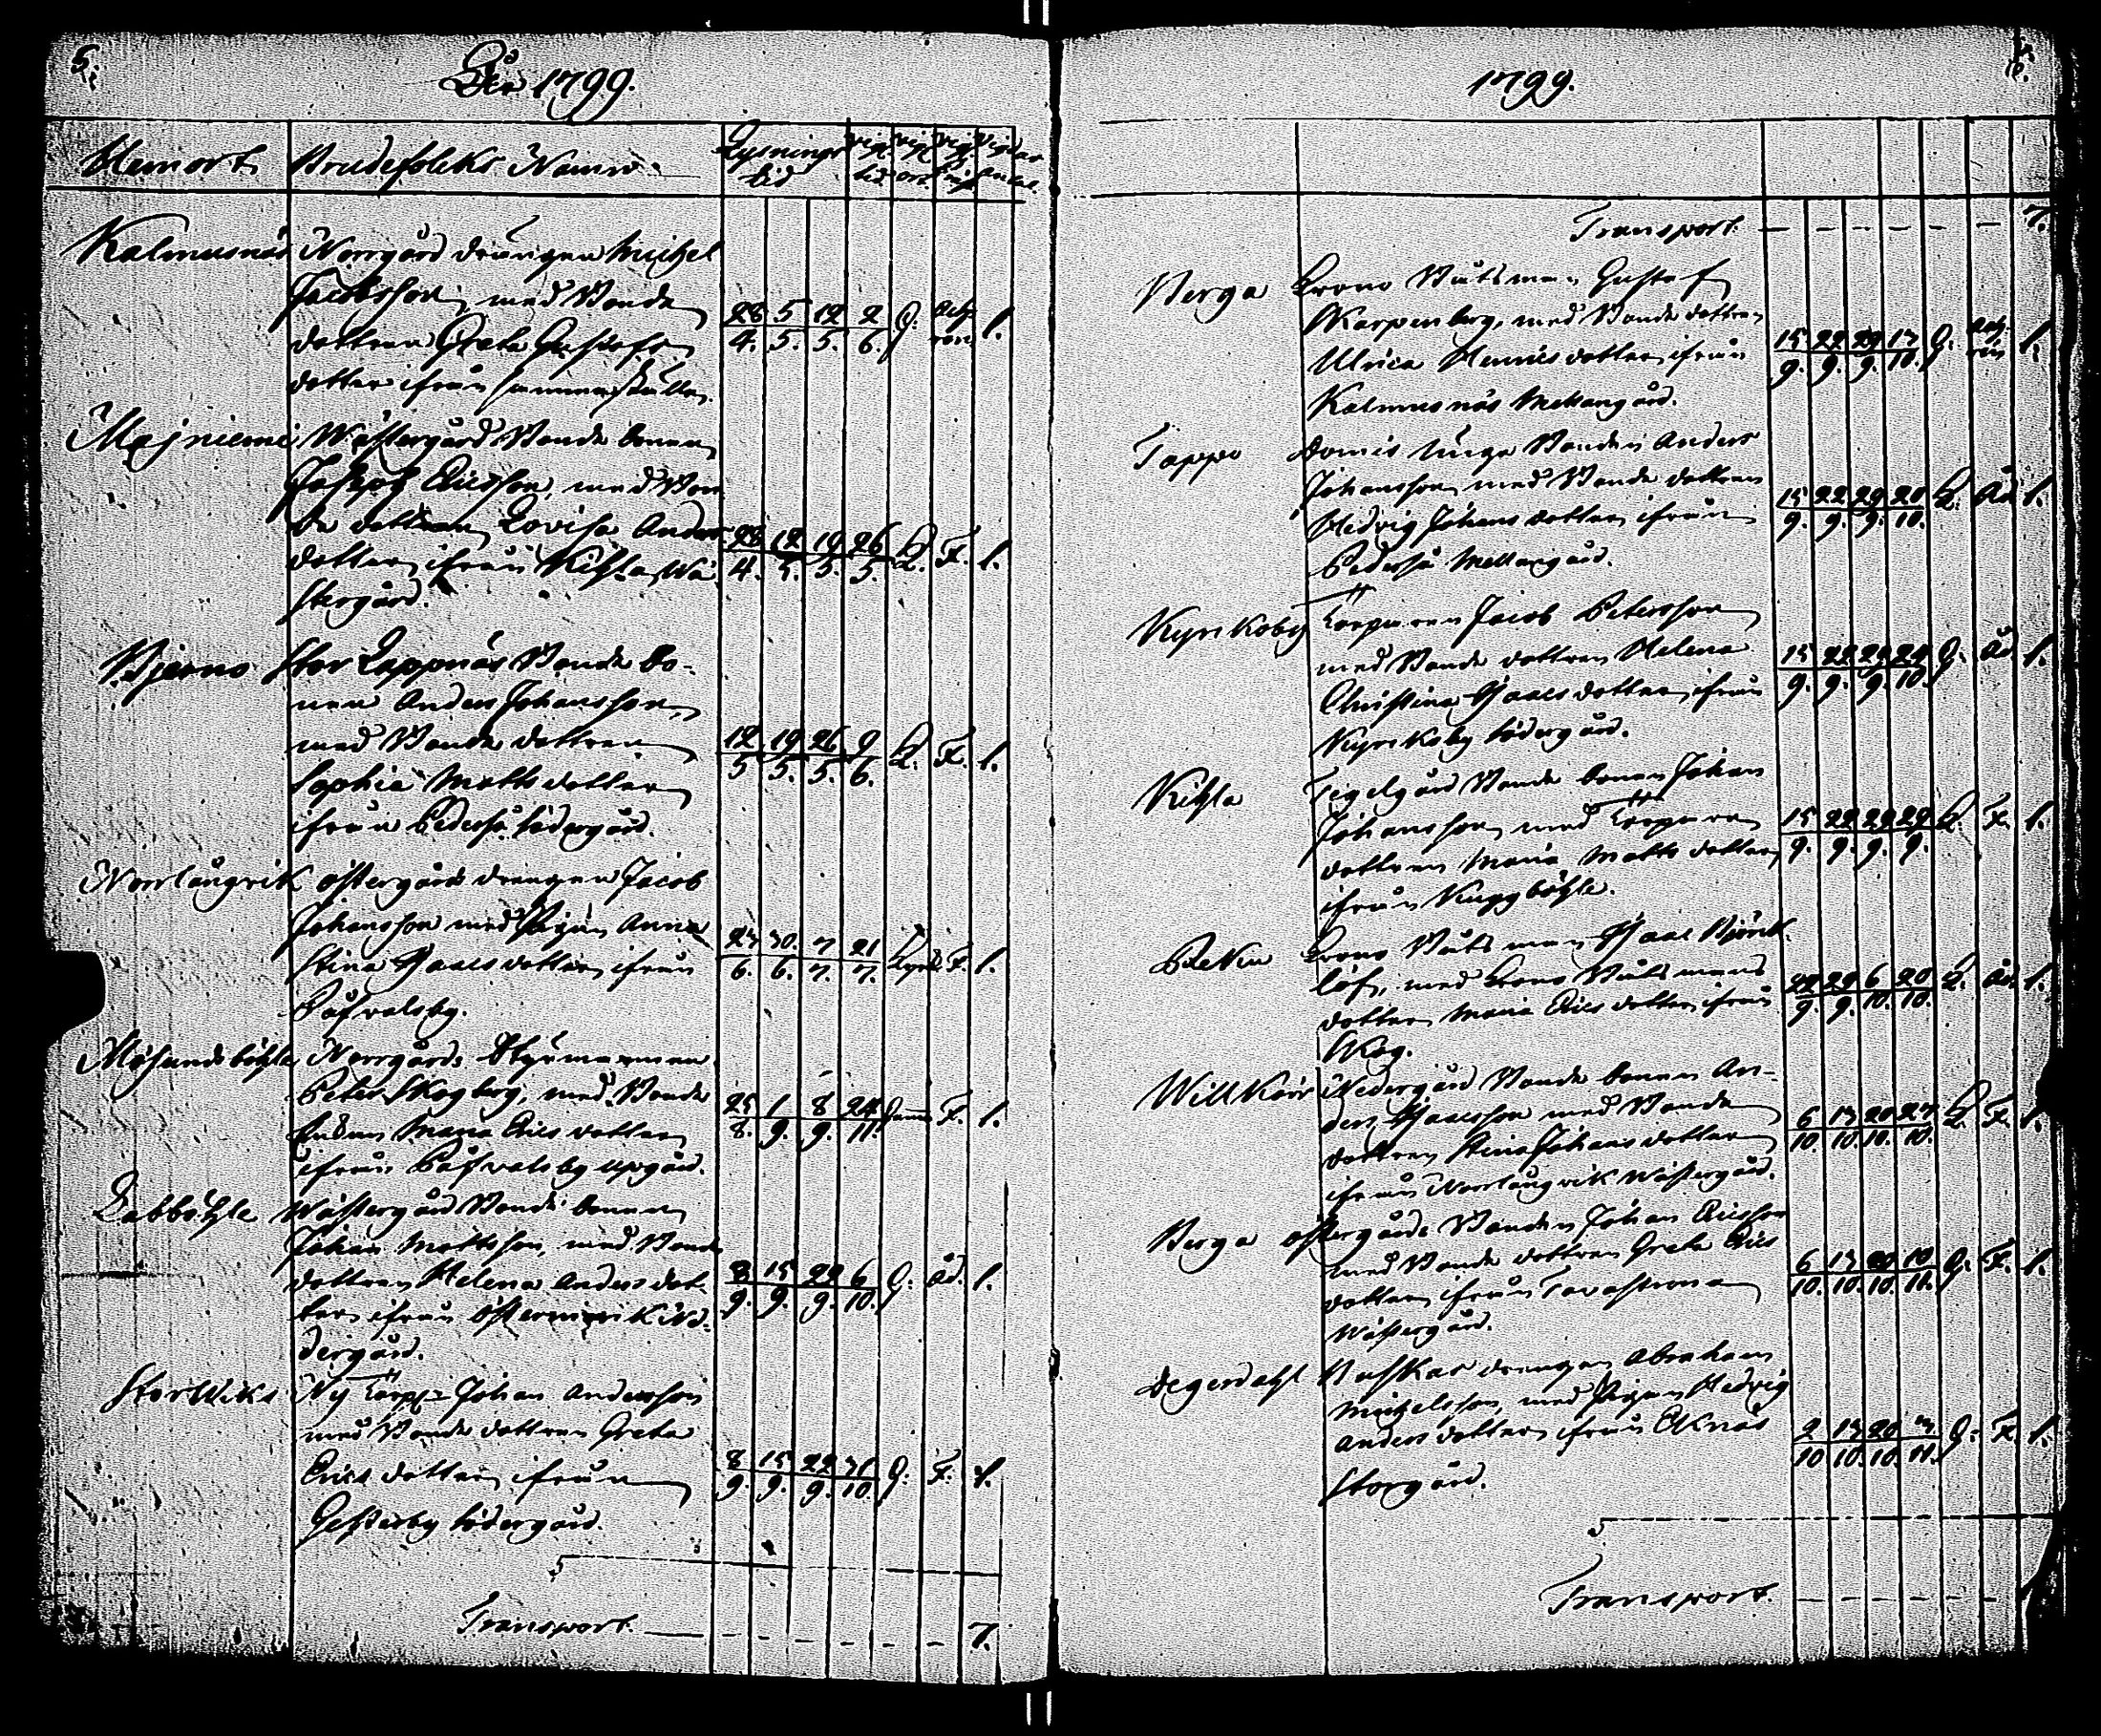 5.
År 1799.
Hemort Brudefolkets Namn Lysnings tid vig. tid vig. ort
Kalmusnäs Norrgård drängen Michel
Jacobsson, med Bonde
dottren Greta Gustafs
dotter ifrån samma ställe.
28/4. 5/5. 12/5. 2/6. 1.
Majniemi Wästergård Bonde Sonen
Joseph Ericsson, med Bon
de dottren Lovisa Anders
dotter ifrån Kihla Wä
stergård.
28/4. 12/5. 19/5. 26/5. F. 1.
Bjerno Stor Lappnäs Bonde So-
nen Anders Johansson,
med Bonde dottren
Sophia Matts dotter
ifrån Pederså Södergård.
12/5 19/5. 26/5. 9/6. F. 1.
Norrlångvik östergårds drengen Jacob
Johansson med Pigan Anna
Stina Isaacs dotter ifrån
Påfvalsby.
23/6. 30/6. 7/7. 21/7. F. 1.
Måsundsböhle Norrgårds Styrmannen
Peter Skogberg, med Bonde
Enkan Maria Erics dotter
ifrån Påfvalsby uppgård.
25/8. 1/9. 8/9. 24/11. F. 1.
Labböhle Wästergård Bonde Sonen
Johan Mattsson, med Bonde
dottren Helena Anders dot-
ter ifrån Östermervik Ne-
dergård.
8/9. 15/9. 22/9. 6/10. G. Åd. 1.
StorWiks Ny Torpp. Johan Andersson
med Bonde dottren Greta
Erics dotter ifrån
Gesterby Södergård.
8/9. 15/9. 22/9. 31/10. G. F. 1.
Transport. 7.
1799.
Transport. 7.
Berga Krono Båtsman Gustaf
Karpenberg, med Bonde dottren
Ulrica Henrics dotter ifrån
Kalmusnäs Mellangård.
15/9. 22/9. 29/9. 13/10. G. 1.
Tappo Domis unga Bonden Anders
Johansson med Bonde dottren
Hedvig Johans dotter ifrån
Pederså Mellangård.
15/9. 22/9. 29/9. 20/10. Åd 1.
Kyrikoby Torparen Jacob Petersson
med Bonde dottren Helena
Christina Isaacs dotter, ifrån
Kyrikoby Södergård.
15/9. 22/9. 29/9. 24/10. G. Åd 1.
Kihla Tegelgård Bonde Sonen Johan
Johansson med Torpare
dottren Maria Matts dotter
ifrån Knuppböhle.
15/9. 22/9. 29/9. 29/9. F. 1.
Krono Båtsman Isaac
löf, med Krono Båtsmans
dotter Maria Erics dotter ifrån
Skog.
22/9. 29/9. 6/10. 20/10. Åd. 1.
WillKärr Nedergård Bonde Sonen An-
ders Isaacsson med Bonde
dottren Stina Johans dotter
ifrån Norrlångvik Wästergård.
6/10. 13/10. 20/10. 27/10. F. 1.
Berga östergårds Bonden Johan Ericsson
med Bonde dottren Greta Erics
dotter ifrån Tavastrona
Wästergård.
6/10. 13/10. 20/10. 10/11. G. F. 1.
Degerdahl drengen Abraham
Michelsson, med Pigan Hedvig
Anders dotter ifrån Eknäs
Storgård.
13/10. 20/10. G. F. 1.
Transport.